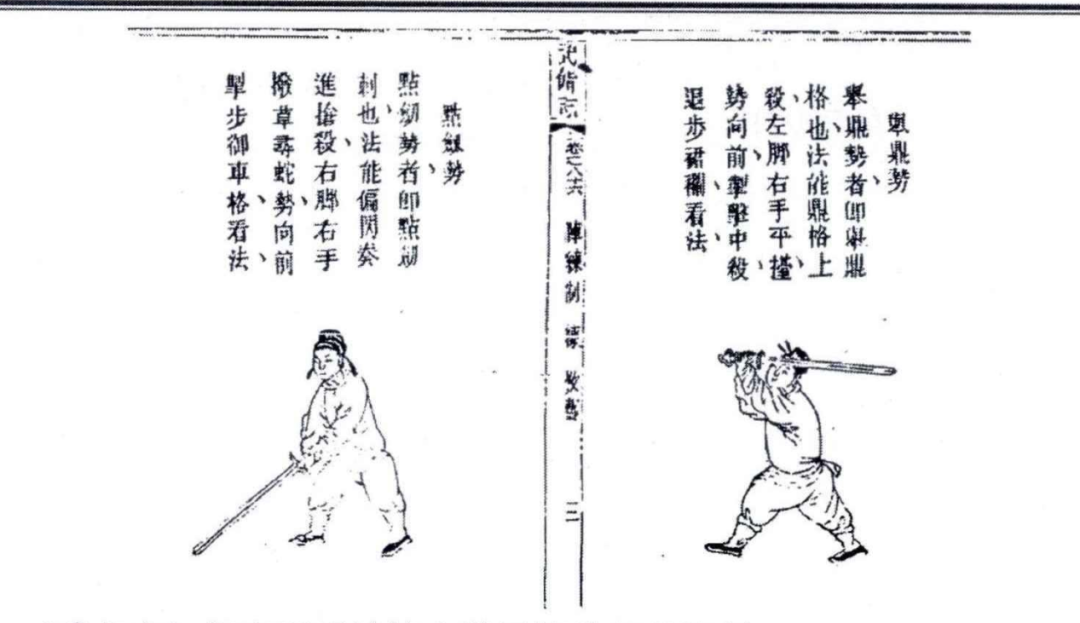 擧鼎勢
擧鼎勢者、卽擧鼎
格也、法能鼎格上
殺、左脚右手平擡、
勢向前、掣擊中殺、
退步裙襴、看法、
武備志 陣練制 練 教藝 二
點劍勢
點劍勢、者卽點劍
刺也、法能偏閃奏
進搶殺、右脚右手
撥草尋蛇勢、向前
掣步御車格、看法、